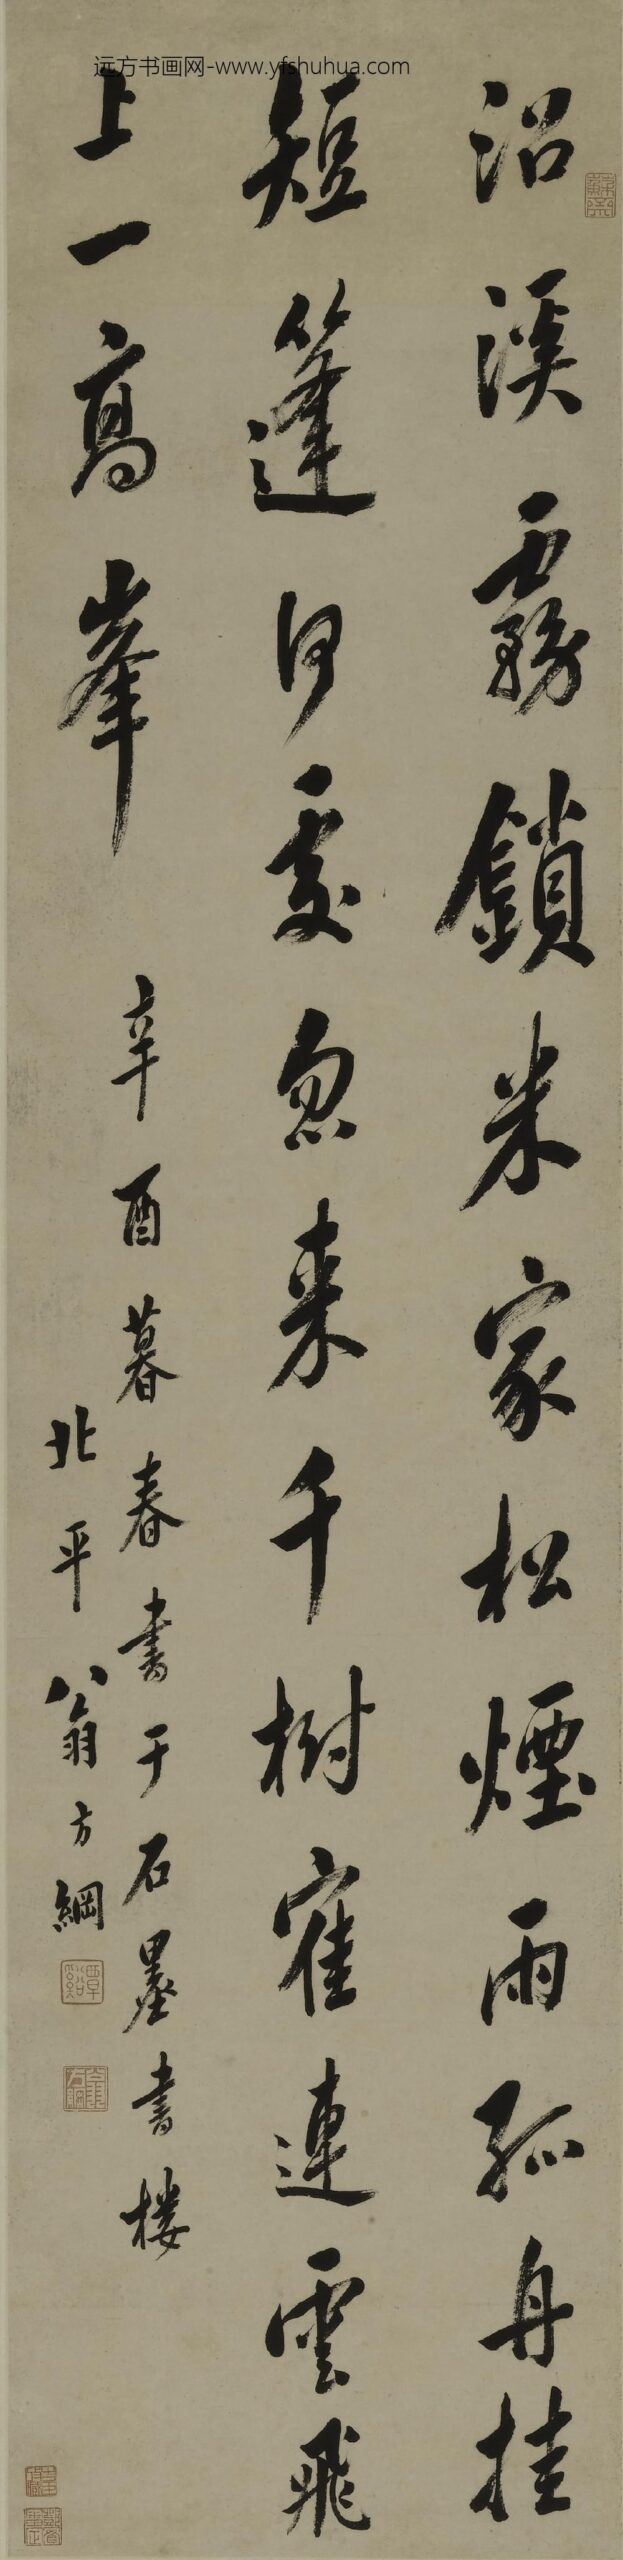 远方书画网-www.yfshuhua.com
沿溪霧鎖米家松煙雨孤舟挂
短篷何處忽來千樹寉連雲飛
上一高峯
辛酉暮春書于石墨書樓
北平翁方綱
覃谿
翁方綱